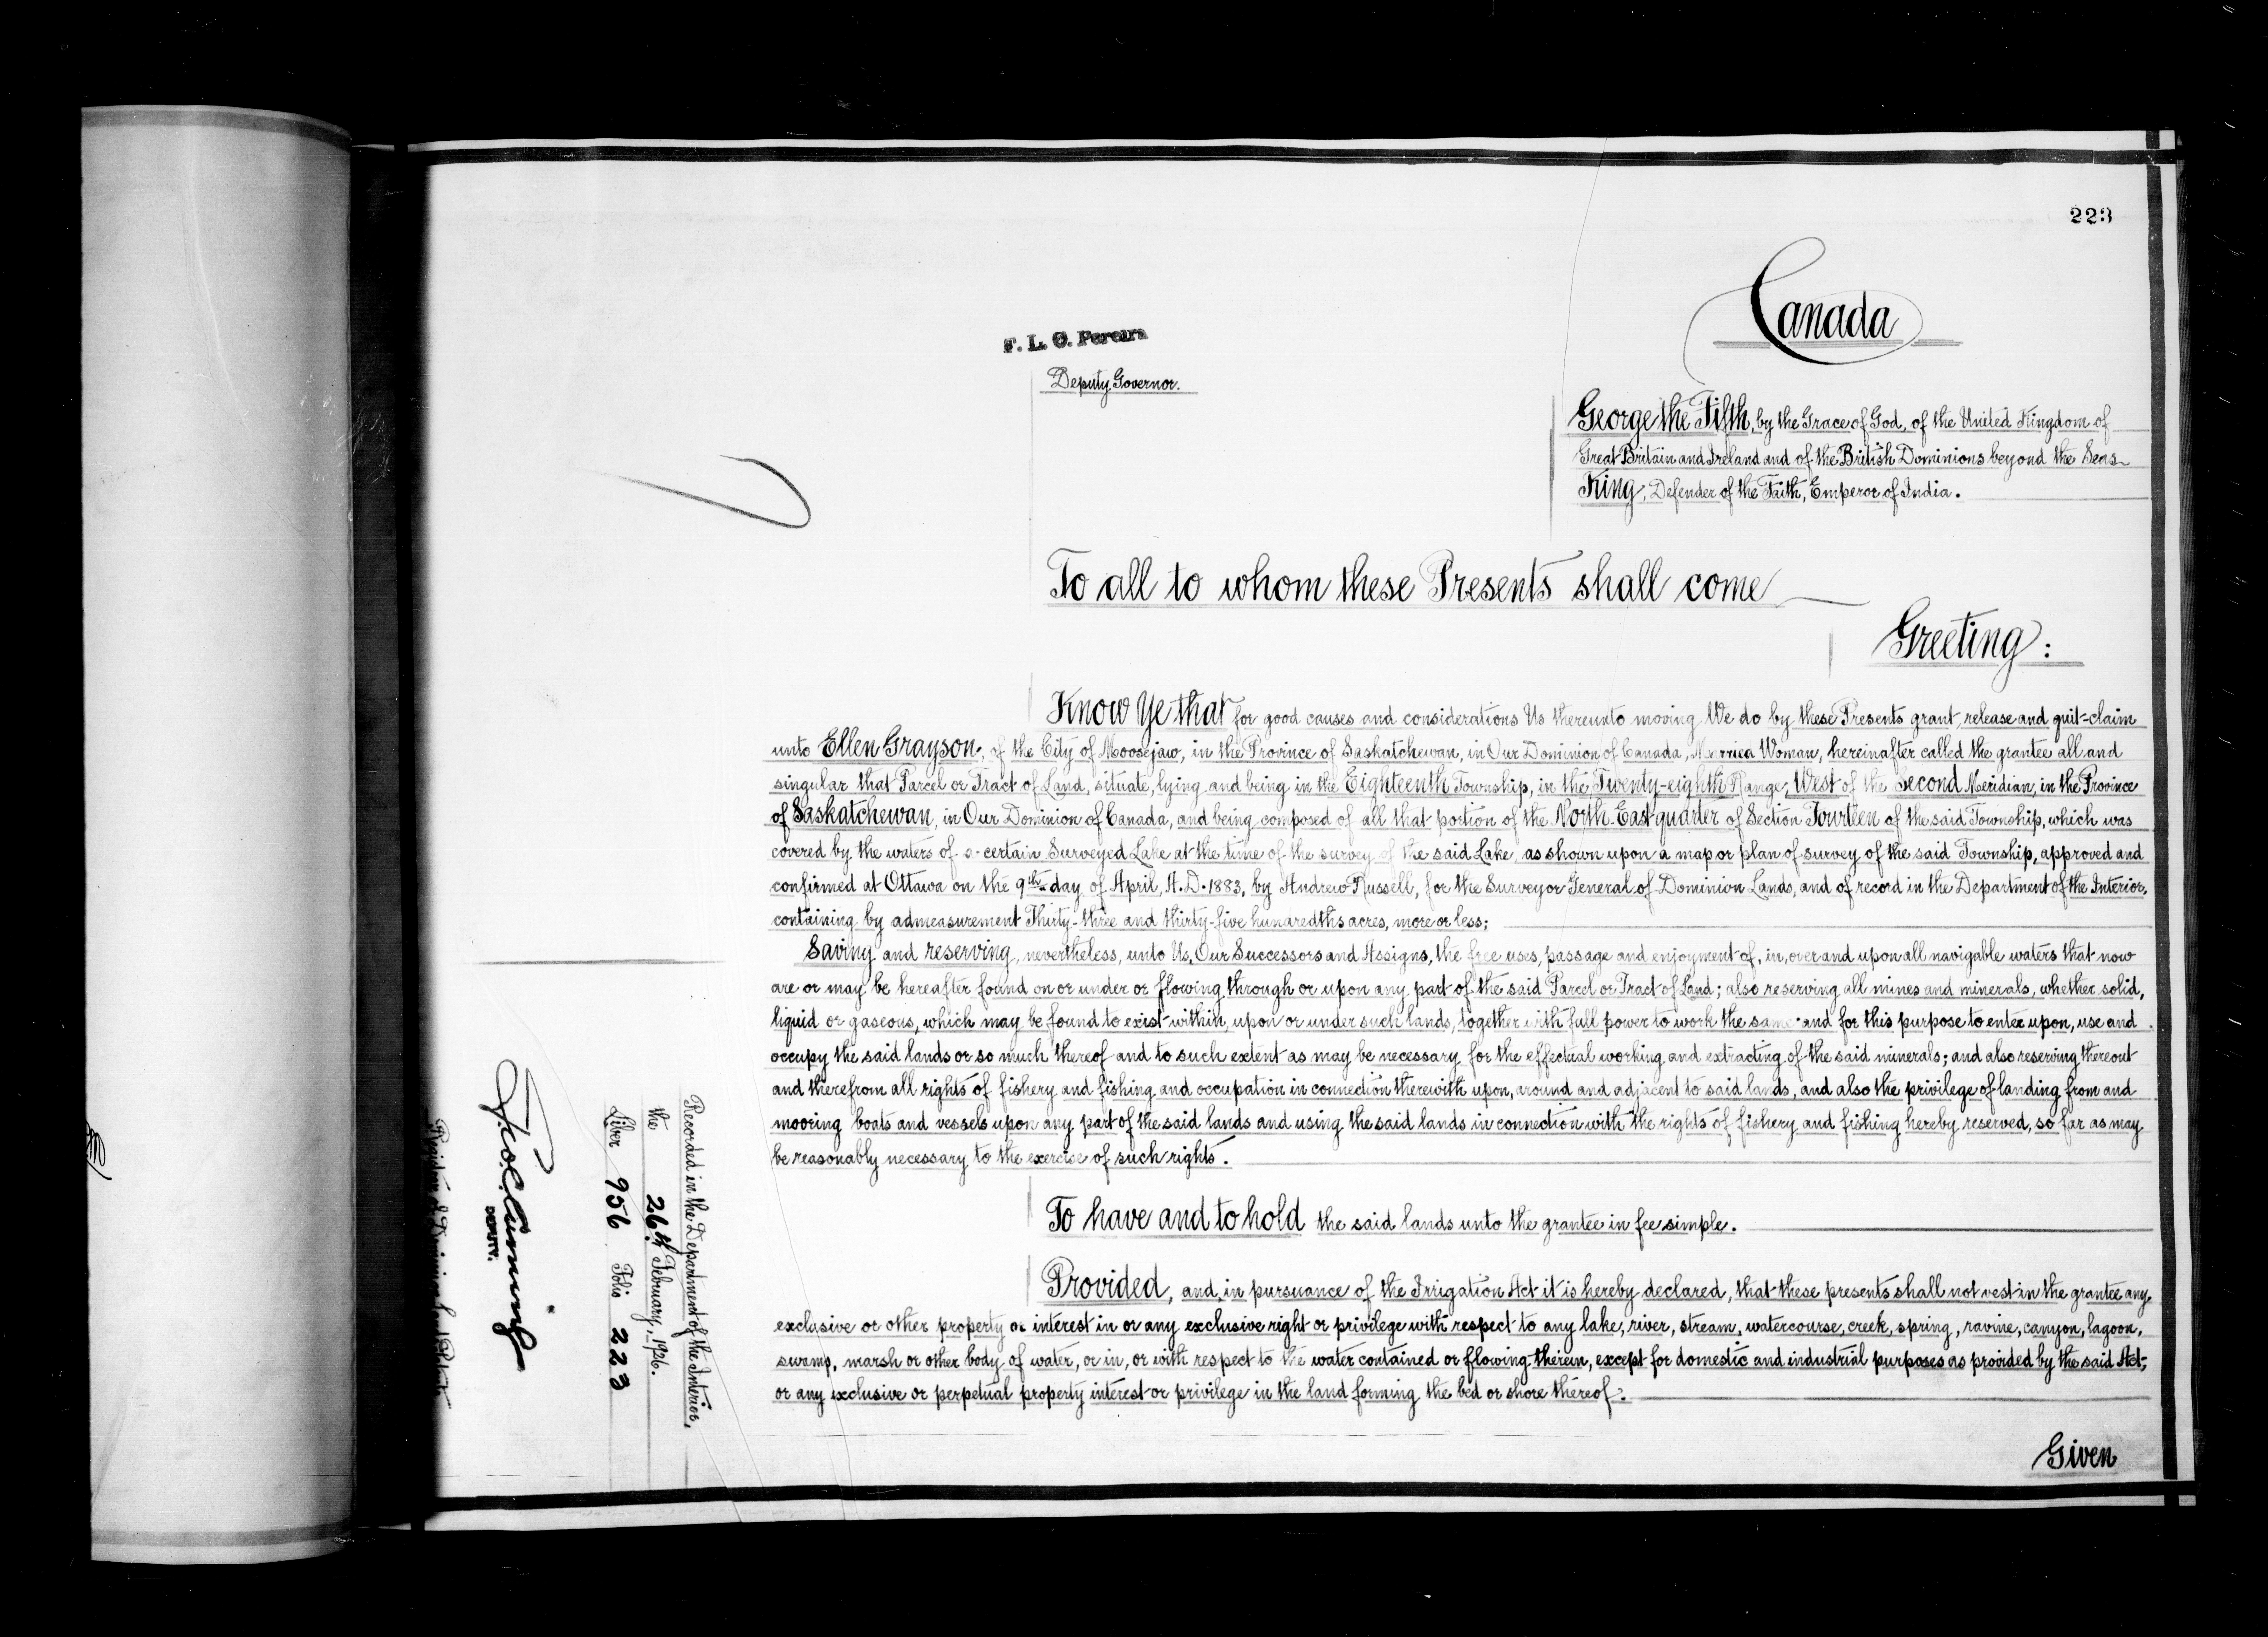 223
Canada
F. L. C. Pereira
Deputy Governor.
George the Fifth, by the Grace of God, of the United Kingdom of
Great Britain and Ireland and of the British Dominions beyond the Seas
King, Defender of the Faith, Emperor of India.
To all to whom these Presents shall come
Greeting:
Know Ye that for good causes and considerations Us thereunto moving We do by these Presents grant, release and quit-claim
unto Ellen Grayson, of the City of Moosejaw, in the Province of Saskatchewan, in Our Dominion of Canada, Married Woman, hereinafter called the grantee all and
singular that Parcel or Tract of Land, situate, lying and being in the Eighteenth Township, in the Twenty-eighth Range, West of the Second Meridian, in the Province
of Saskatchewan, in Our Dominion of Canada, and being composed of all that portion of the North-East quarter of Section Fourteen of the said Township, which was
covered by the waters of a certain Surveyed Lake at the time of the survey of the said Lake, as shown upon a map or plan of survey of the said Township, approved and
confirmed at Ottawa on the 9th day of April, A.D. 1883, by Andrew Russell, for the Surveyor General of Dominion Lands, and of record in the Department of the Interior,
containing by admeasurement Thirty-three and thirty-five hundredths acres, more or less;
Saving and reserving, nevertheless, unto Us, Our Successors and Assigns, the free uses, passage and enjoyment of, in, over and upon all navigable waters that now
are or may be hereafter found on or under or flowing through or upon any part of the said Parcel or Tract of Land; also reserving all mines and minerals, whether solid,
liquid or gaseous, which may be found to exist within, upon or under such lands, together with full power to work the same and for this purpose to enter upon, use and
occupy the said lands or so much thereof and to such extent as may be necessary for the effectual working and extracting of the said minerals; and also reserving thereout
and therefrom all rights of fishery and fishing and occupation in connection therewith upon, around and adjacent to said lands, and also the privilege of landing from and
mooring boats and vessels upon any part of the said lands and using the said lands in connection with the rights of fishery and fishing hereby reserved, so far as may
be reasonably necessary to the exercise of such rights.
To have and to hold the said lands unto the grantee in fee simple.
Provided, and in pursuance of the Irrigation Act it is hereby declared, that these presents shall not vest in the grantee any
exclusive or other property or interest in or any exclusive right or privilege with respect to any lake, river, stream, watercourse, creek, spring, ravine, canyon, lagoon,
swamp, marsh or other body of water, or in, or with respect to the water contained or flowing therein, except for domestic and industrial purposes as provided by the said Act,
or any exclusive or perpetual property interest or privilege in the land forming the bed or shore thereof.
Given
Recorded in the Department of the Interior,
the 26th February, 1926.
Liber 956 Folio 223
DEPUTY.
Registrar of Dominion Land Patents